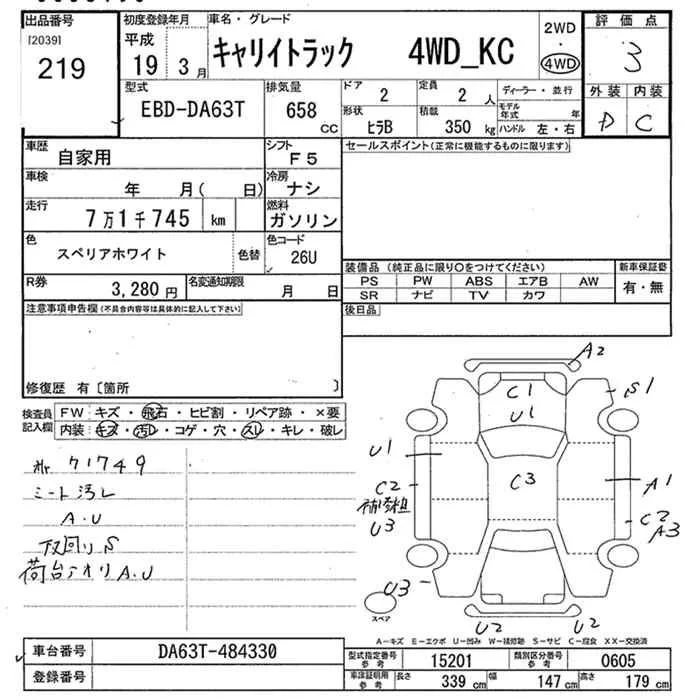 出品番号
[2039]
219
初度登録年月
平成
19 3月
車名・グレード
キャリイトラック 4WD_KC
2WD
・
4WD
評価点
3
外装 内装
D C
型式
EBD-DA63T
排気量
658 cc
ドア
2
定員
2 人
形状
ヒラB
積載
350 kg
ディーラー・並行
モデル年式 年
ハンドル 左・右
車歴
自家用
シフト
F5
車検
年 月( 日)
冷房
ナシ
走行
7万1千745 km
燃料
ガソリン
色
スペリアホワイト
色替
色コード
26U
R券
3,280 円
名変通知期限
月 日
セールスポイント(正常に機能するものに限ります)
装備品 (純正品に限り○をつけてください)
PS PW ABS エアB AW
SR ナビ TV カワ
新車保証書
有・無
後日品
注意事項申告欄(不具合内容等は具体的に記入して下さい)
修復歴 有〔箇所 〕
検査員記入欄
FW キズ・飛石・ヒビ割・リペア跡・×要
内装 キズ・汚レ・コゲ・穴・スレ・キレ・破レ
71749
シート汚レ
A.U
下回りS
荷台アオリA.U
A2
C1
U1
S1
U1
C2
補修粗
U3
C3
A1
C2
A3
U3
U2
U2
スペア
A-キズ E-エクボ U-凹み W-補修跡 S-サビ C-腐食 XX-交換済
車台番号
DA63T-484330
登録番号
型式指定番号
参考
15201
類別区分番号
参考
0605
車庫証明用
参考
長さ 339 cm
幅 147 cm
高さ 179 cm